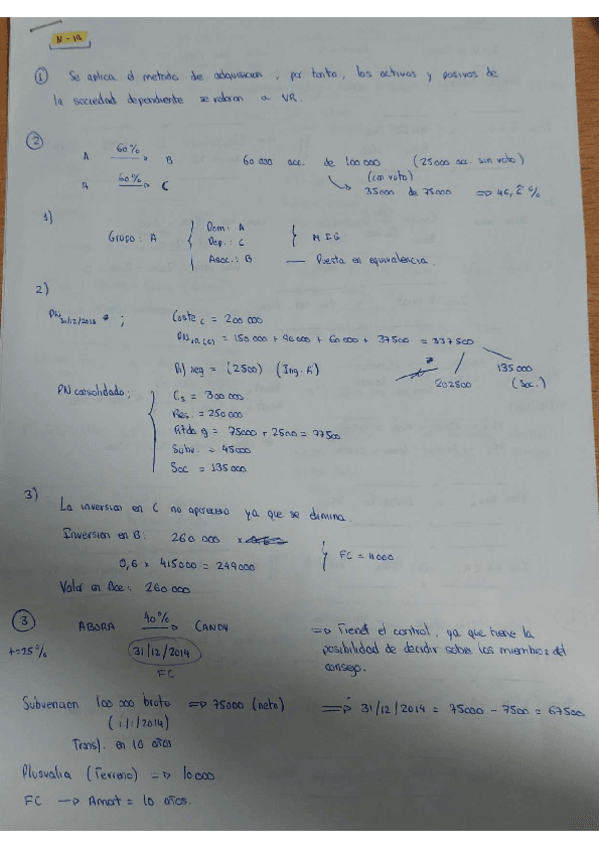 N-1A
① Se aplica el metodo de adquisicion, por tanto, los activos y pasivos de
la sociedad dependiente se valoran a VR.
②
A 60% → B 60 000 acc. de 100 000 (25000 acc. sin voto)
A 60% → C (con voto) 35000 de 75000 => 46,6̂ %
1)
Grupo: A { Dom: A
Dep.: C } MIG
Asoc.: B — Puesta en equivalencia.
2)
PN 31/12/2013 ; Coste c = 200 000
PN VR (C) = 150 000 + 90 000 + 60 000 + 37 500 = 337 500
Dif neg = (2500) (Ing. A) 202 500 135 000 (Soc.)
PN consolidado: { Cs = 300 000
Res. = 250 000
Rtdo g = 75000 + 2500 = 77500
Subv. = 45000
Soc = 135 000
3)
La inversion en C no aparece ya que se elimina.
Inversion en B: 260 000
0,6 x 415000 = 249000 } FC = 11000
Valor en Bce: 260 000
③ ABORA 40% → CANDY => Tiene el control, ya que tiene la
t=25% 31/12/2014 posibilidad de decidir sobre los miembros del
FC consejo.
Subvencion 100 000 bruto => 75000 (neto) => 31/12/2014 = 75000 - 7500 = 67500
(1/1/2014)
Transf. en 10 años
Plusvalia (Terreno) => 10 000
FC → Amort = 10 años.